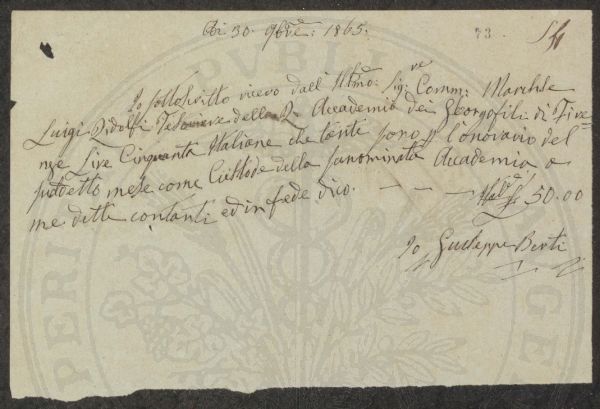 Adi 30. 9bre: 1865.
73.
Io sottoscritto ricevo dall' Illmo: Sigr: ve Comm: Marchse
Luigi Ridolfi Tesoriere della R. Accademia dei Georgofili di Fire=
nze Lire Cinquanta Italiane che tante sono p l'onorario del
sudetto mese come Custode della sunominata Accademia a
me dette contanti ed in fede dico. — — — £ 50.00
Io Giuseppe Berti